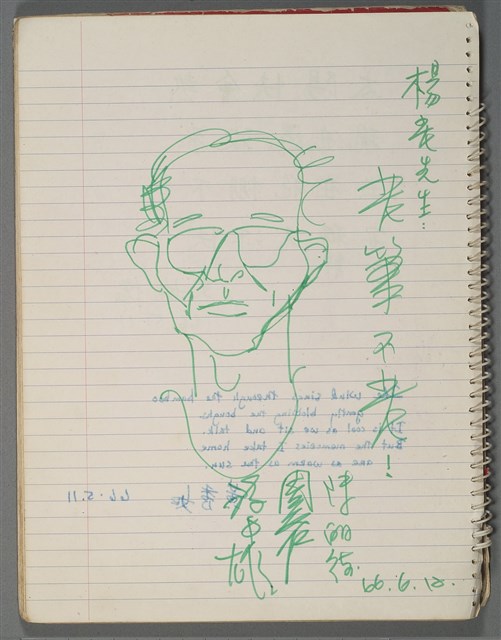 楊老先生:
老筆不老!
陳
66.6.12.
wind sings through the bamboo
gently blowing the boughs.
It is cool as we sit and talk.
But the memories I take home
are as warm as the sun
66.5.11